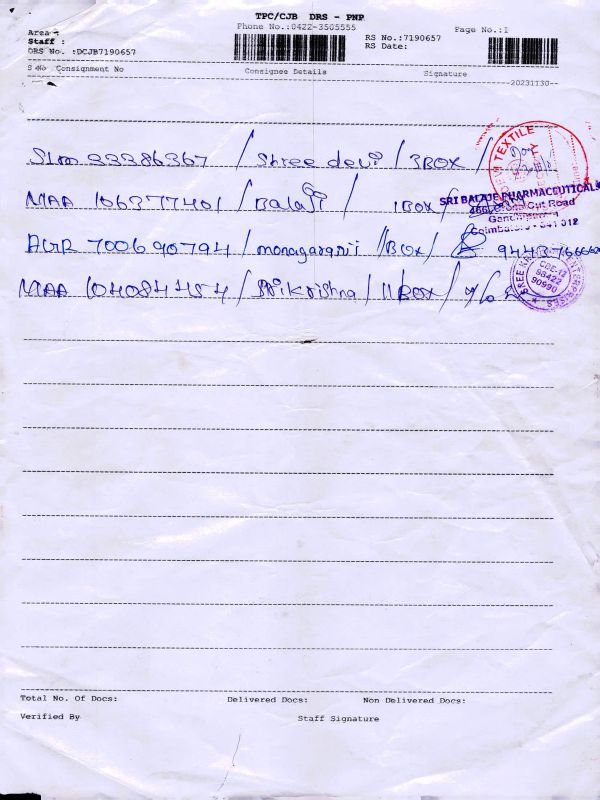 TPC/CJB DRS - PNP
Phone No.:0422-3505555
Page No.:1
Area -
Staff :
DRS No. :DCJB7190657
RS No.:7190657
RS Date:
S No Consignment No Consignee Details Signature
20231130
Slm 33386367 / Shree devi / 3BOX /
TEXTILE
MAA 106377401 / Balaji / 1BOX /
SRI BALAJE PHARMACEUTICALS
Cut Road
Coimbatore - 641 012
AGR 700690794 / monagaravi / 1BOX /
MAA 104084454 / Srikrishna / 11BOX /
CBE-12
98422
90990
Total No. Of Docs: Delivered Docs: Non Delivered Docs:
Verified By Staff Signature